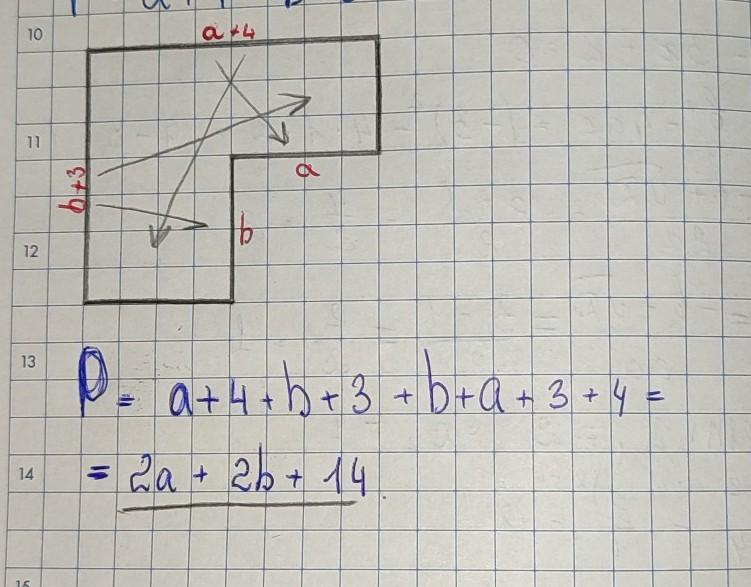 10
a+4
11
b+3
a
b
12
13
P = a+4+b+3 +b+a+3+4 =
14
= 2a + 2b + 14